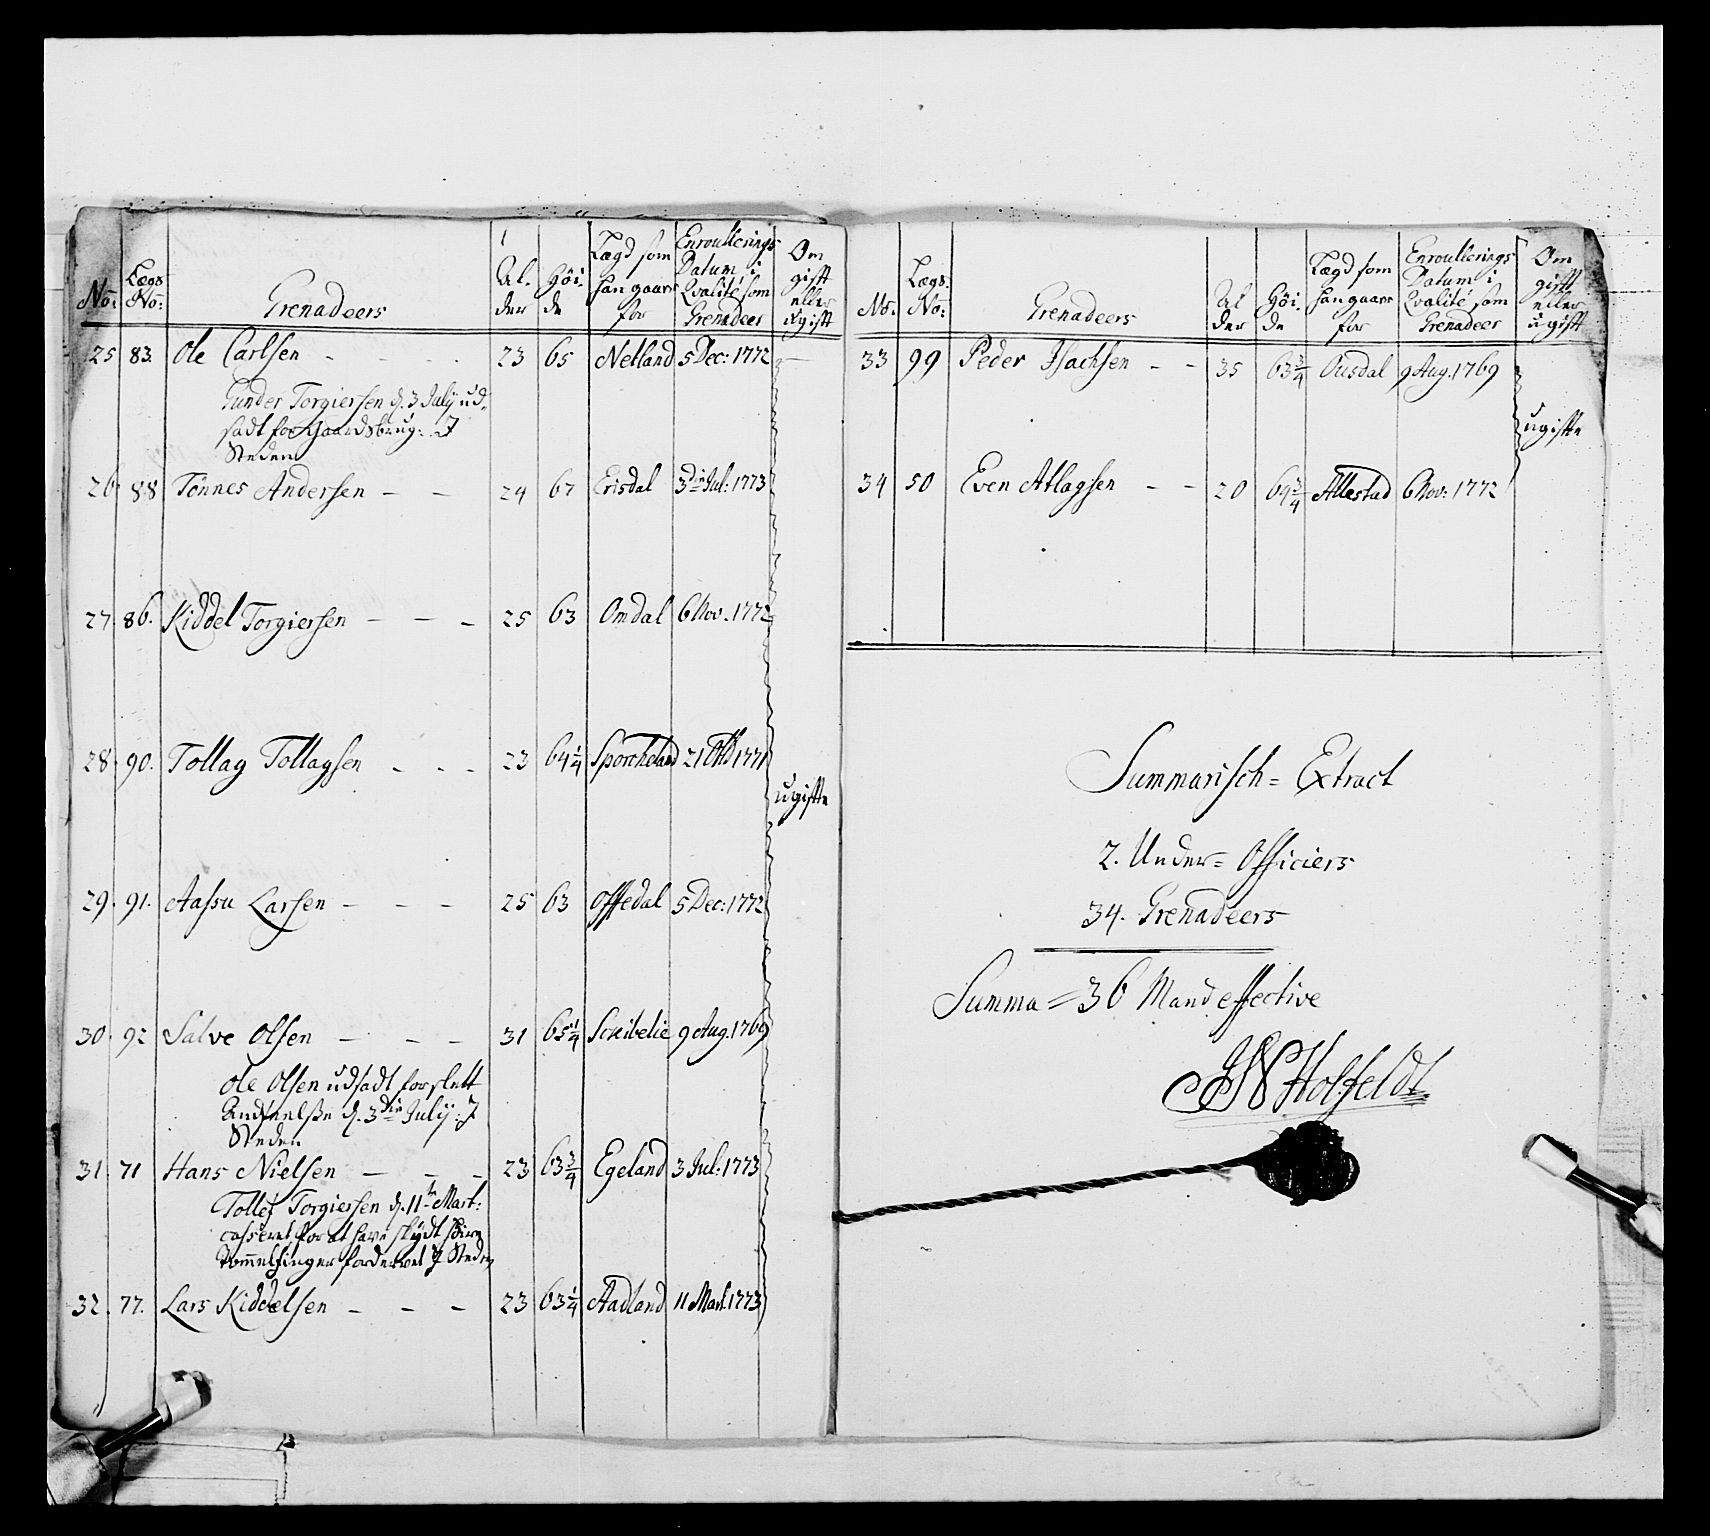 No: Lægs No: Grenadeers Alder Höide Lægd som han gaar for Enroullerings Datum i Qvalité som Grenadeer Om gift eller ugift
25 83. Ole Carlsen - - - 23 65 Netland 5 Dec: 1772
Gunder Torgiersen d. 3 July ud-
sadt for Gaardsbrug: I
Steden
26 88 Tönnes Andersen - - 24 67 Erisdal 3die Jul: 1773
27. 86. Kiddel Torgiersen - - - 25 63 Omdal 6 Nov. 1772
28 90. Tollag Tollagsen - - - 23 64 1/4 Sporcheland 21 Oct 1771
ugifte
29. 91. Aassu Larsen - - - 25 63 Offedal 5 Dec: 1772
30. 92 Salve Olsen - - - 31 65 1/4 Scheibelie 9 Aug. 1769
Ole Olsen udsadt for slett
d. 3die July: I
Steden
31. 71 Hans Nielsen - - - 23 63 3/4 Egeland 3 Jul: 1773
Tollef Torgiersen d. 11te Mart:
casseret for at have skydt
Tommelfinger fordervet I Steden
32. 77. Lars Kiddelsen - - - 23 63 1/4 Aadland 11 Mart. 1773
No. Lægs No: Grenadeers Alder Höide Lægd som han gaar for Enroullerings Datum i Qvalité som Grenadeer Om gift eller ugift
33 99 Peder Isachsen - - 35 63 3/4 Ousdal 9 Aug. 1769
ugifte
34 50 Even Atlagsen - - 20 64 3/4 Allestad 6 Nov: 1772
Summarisch = Extract
2. Under = Officiers
34. Grenadeers
Summa = 36 Mand effective
Holfeldt